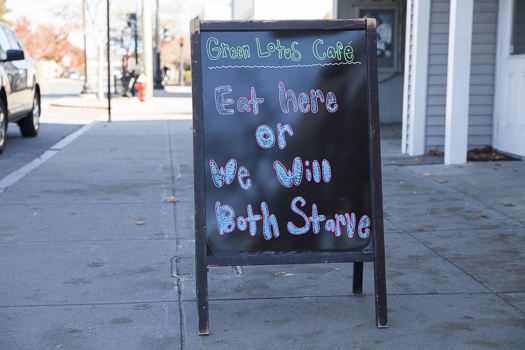 Green Lotus Café
Eat Here
or
We Will
Both Starve